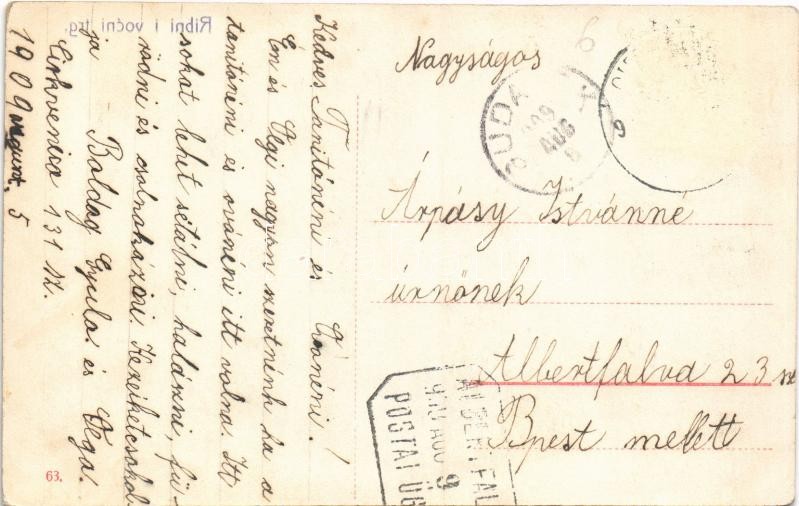 Ribni i voćni trg.
Kedves Tanitónéni és Óvónéni!
Én és Olgi nagyon szeretnénk ha a
tanitónéni és óvónéni itt volna. Itt
sokat lehet sétálni, halászni, fü-
rödni és csolnakázni. Kezeiket csókol-
ja Boldog Gyula és Olga.
Cirkvenica 131 sz.
1909 auguszt. 5
63.
Nagyságos
BUDA
909 AUG
Árpásy Istvánné
úrnőnek
Albertfalva 23 sz
Bpest mellett
ALBERTFAL
AUG 9
POSTAI ÜG